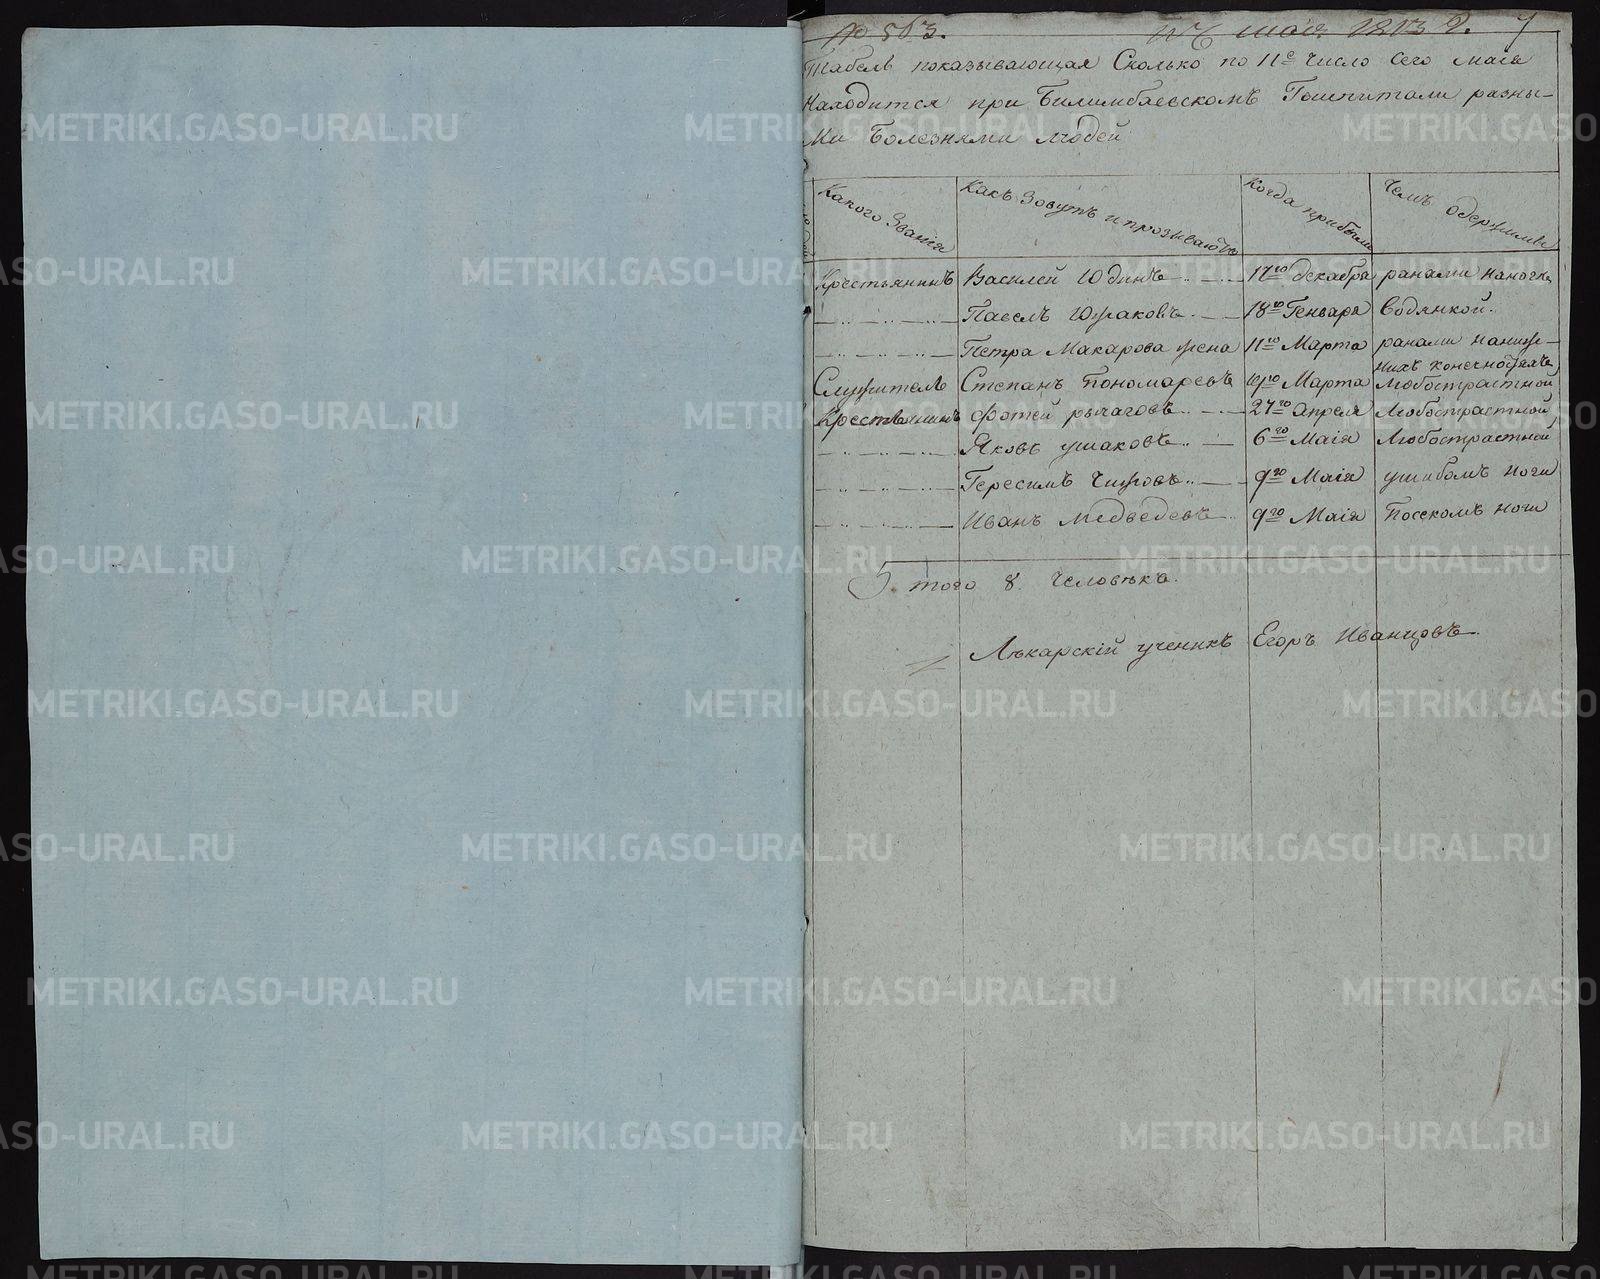 № 513. маія 1813 г. 7
Табель показывающая Сколько по 11е число сего маія
Находится при Билимбаевскомъ Гошпитали разны-
ми болезнями людей
Какого Званія Какъ Зовутъ и прозываютъ Когда прибыли Чемъ одержимы
Крестьянинъ Василей Юдинъ 17го декабря ранами на ноге
Павелъ Юшаковъ 18го Генваря водянкой.
Петра Макарова жена 11го Марта ранами на ниж-
нихъ конечностяхъ
Служитель Степанъ Пономаревъ Марта Любострастной
Крестьянинъ Фотей рычаговъ 27го апреля Любострастной
Яковъ ушаковъ 6го Маія Любострастной
Гересимъ Чижовъ 9го Маія ушибомъ ноги
Иванъ Медведевъ 9го Маія Посекомъ ноги
Итого 8 человѣкъ.
Лѣкарскій ученикъ Егоръ Иванцовъ
METRIKI.GASO-URAL.RU